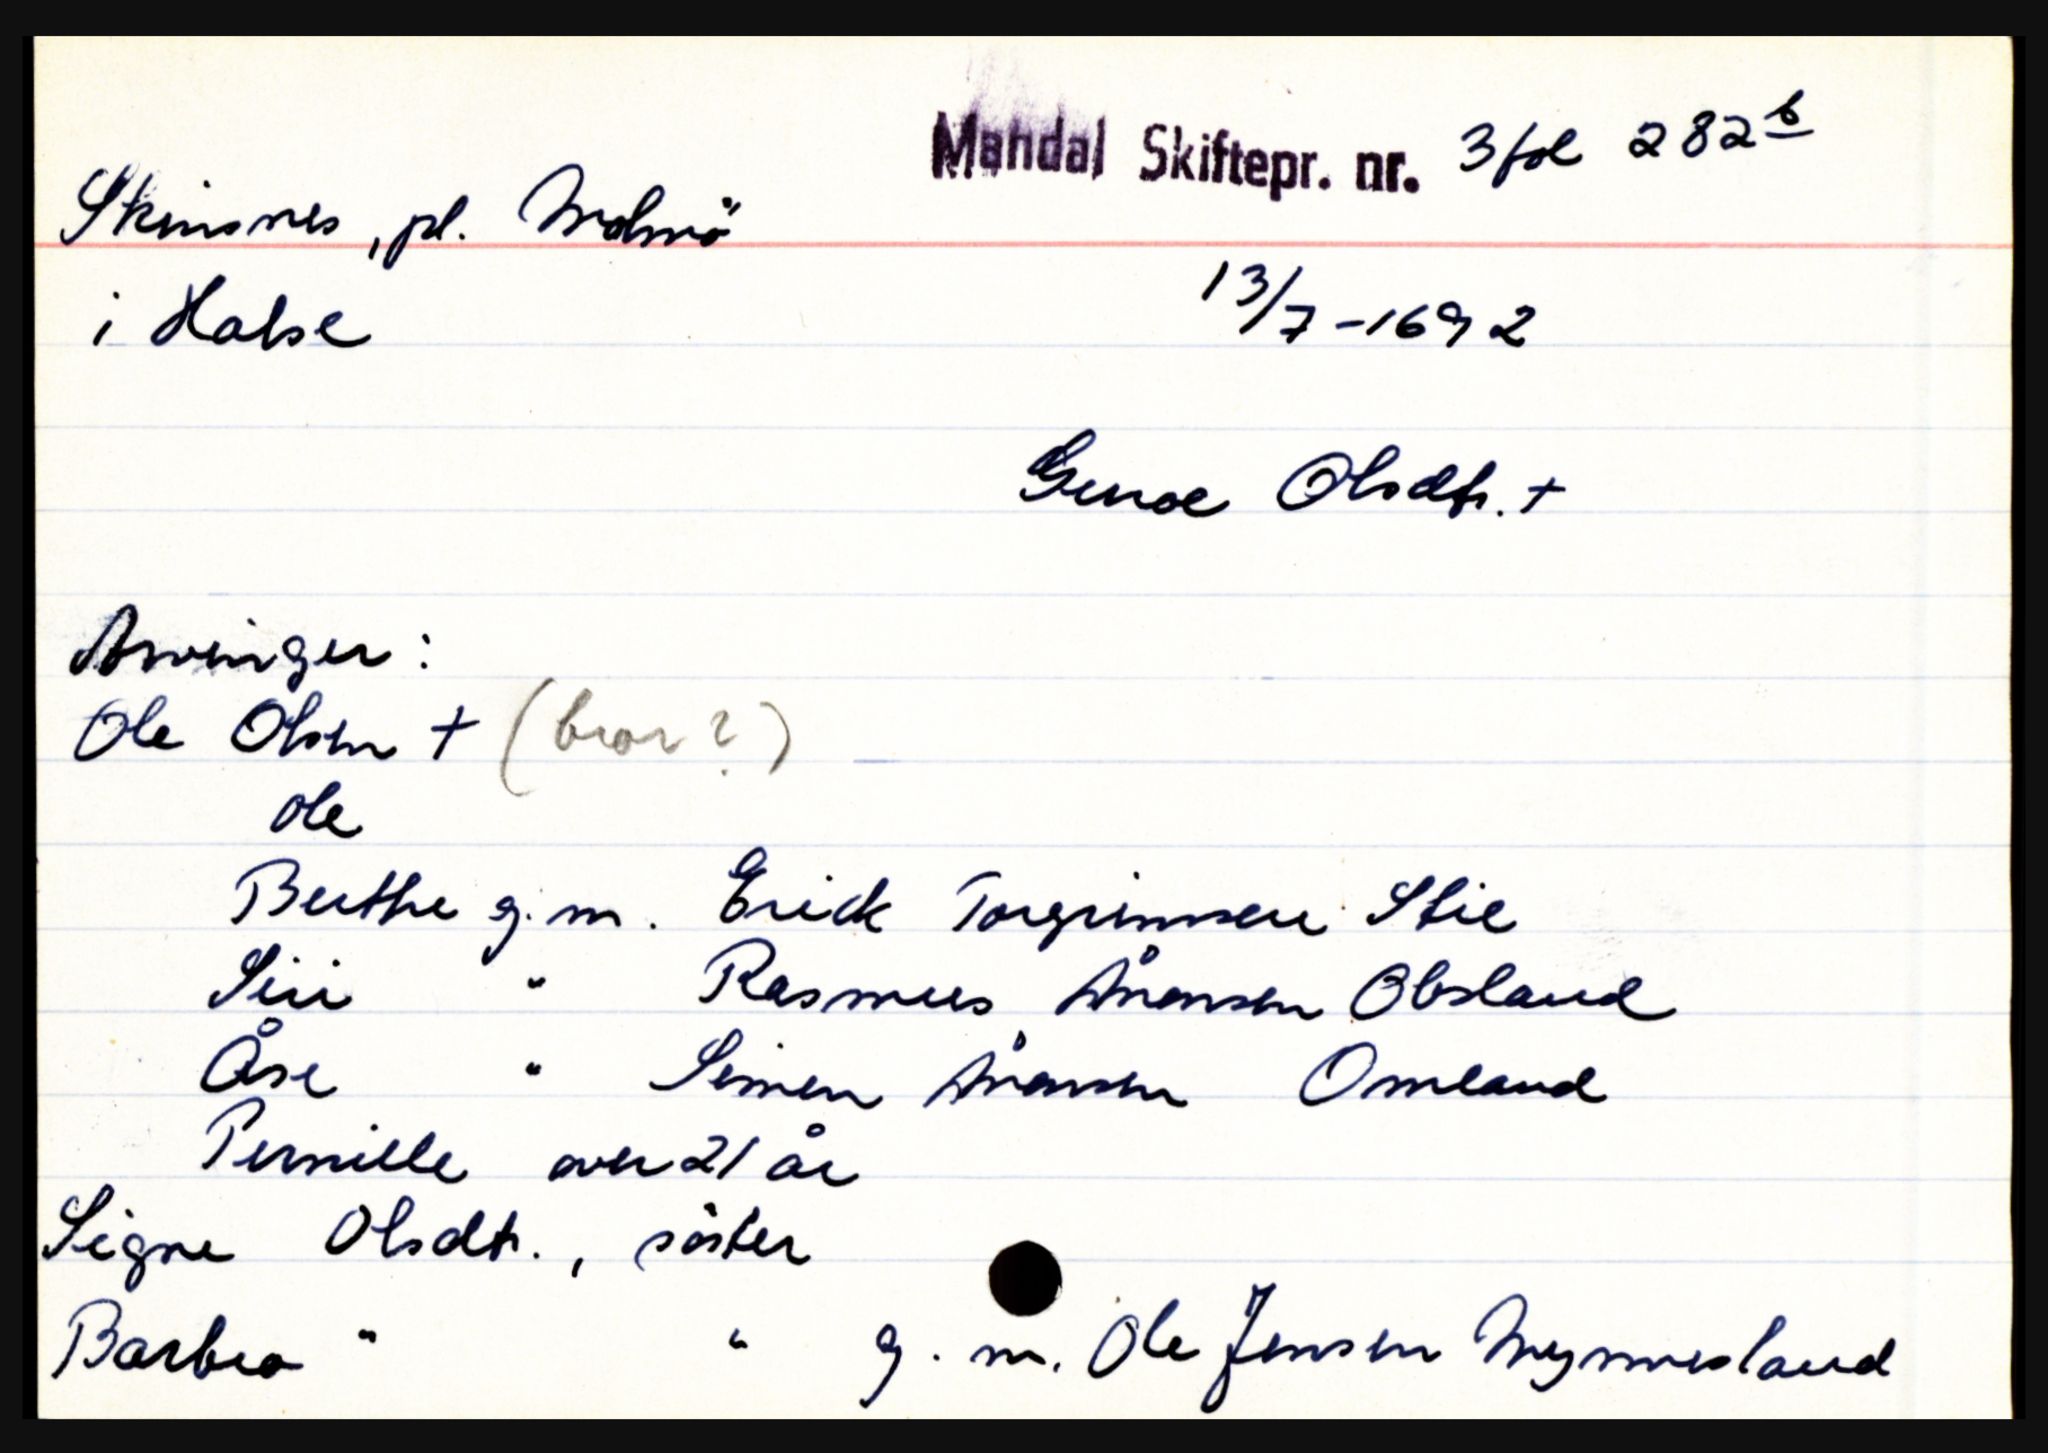 Mandal Skiftepr. nr. 3 fol 282 b
Skinsnes, pl. Malmö
i Halse
13/7-1692
Guroe Olsdtr. +
Arvinger:
Ole Olsen + (bror?)
Ole
Berthe g.m. Erick Torgrimsen Stie
Siri " Rasmus Ånensen Obsland
Åse " Simen Ånensen Omland
Pernille over 21 år
Signe Olsdtr., söster
Barbro " " g.m. Ole Jensen